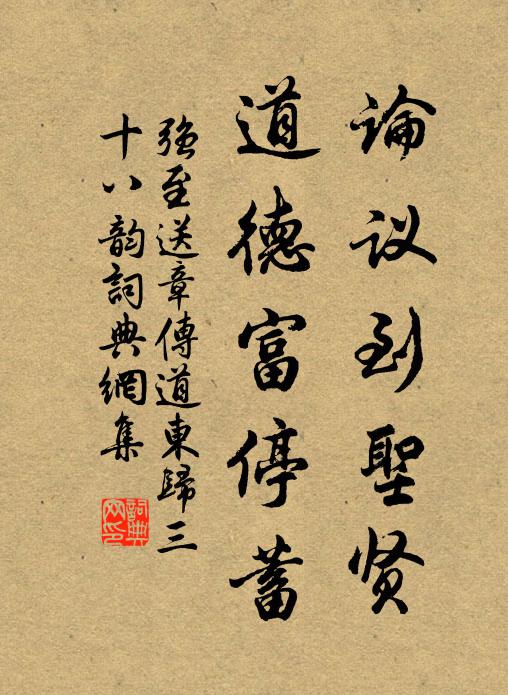 論议到聖贤
道德富停蓄
強至送章傳道東歸三
十八韵詞典網集
詞典
网印